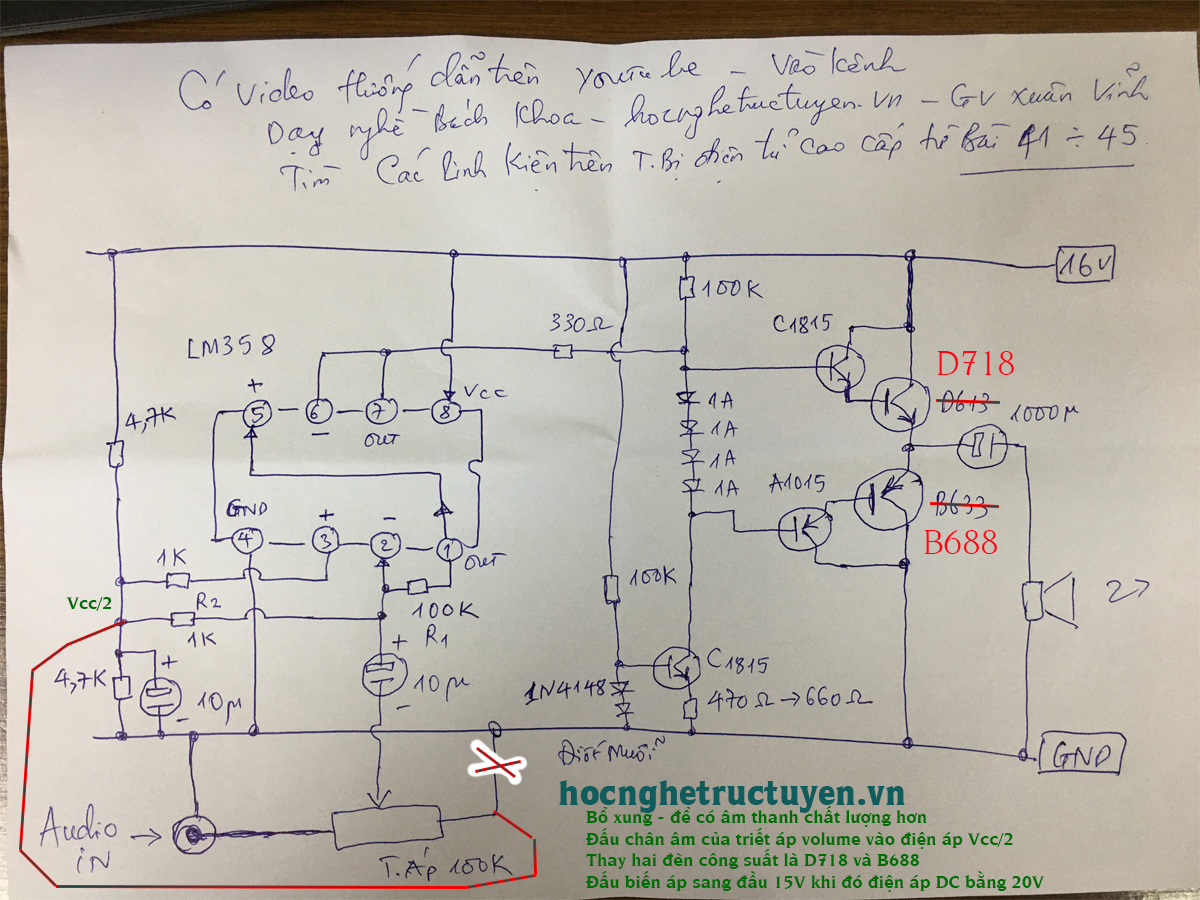 Có Video hướng dẫn trên youtube - Vào kênh
Dạy nghề Bách Khoa - hocnghetructuyen.vn - GV Xuân Vinh
Tìm Các linh kiện trên T.Bị điện tử cao cấp từ Bài 41 ÷ 45
16V
100K
330Ω
C1815
LM358
D718
D613
1000µ
+
5
6
7
8
Vcc
-
OUT
4,7K
1A
1A
1A
1A
A1015
B633
B688
GND
+
-
4
3
2
1
OUT
1K
100K
100K
R2
Vcc/2
1K
R1
+
4,7K
+
10µ
-
10µ
-
1N4148
C1815
470Ω → 660Ω
Điốt Muỗi
GND
hocnghetructuyen.vn
Bổ xung - để có âm thanh chất lượng hơn
Đấu chân âm của triết áp volume vào điện áp Vcc/2
Thay hai đèn công suất là D718 và B688
Đấu biến áp sang đầu 15V khi đó điện áp DC bằng 20V
Audio
iN
T.Áp 100K